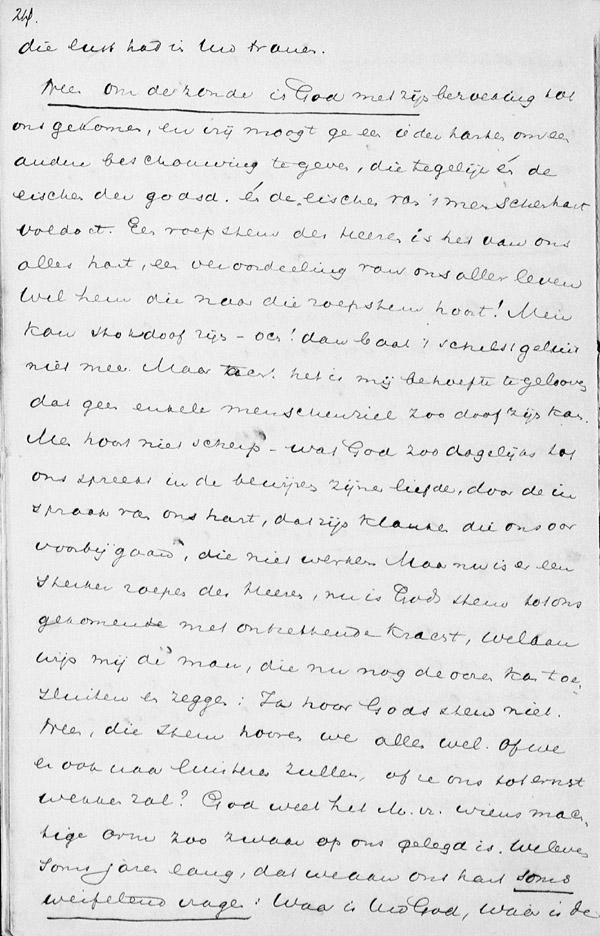 24.
die lust had is uw trouw.
Neen om de zonde is God met zijn bezoeking tot
ons gekomen, en vrij moogt ge een ieder harten om een
andere beschouwing te geven, die tegelijk én de
eischen der godsd. én de eischen van 't menschenhart
voldoet. Een roepstem des Heeren is het van ons
aller hart, een veroordeeling van ons aller leven
Wel hem die naar die roepstem hoort! Men
kan stokdoof zijn – och! dan baat 't schelst geluid
niet meer. Maar het is mij behoefte te gelooven
dat geen enkele menschenziel zoo doof zijn kan.
Men hoort niet scherp – wat God zoo dagelijks tot
ons spreekt in de bewijzen zijner liefde, door de in
spraak van ons hart, dat zijn klanken die ons oor
voorbij gaan, die niet werken. Maar nu is er een
sterker roepen des Heeren, nu is Gods stem tot ons
gekomen met ontzettende kracht, welaan
wijs mij de man, die nu nog de ooren kan toe-
sluiten en zeggen: Ik hoor Gods stem niet.
Neen, die stem hooren we allen wel. Of we
er ook naar luisteren zullen, of ze ons tot ernst
wekken zal? God weet het M. vr. wiens mach-
tige arm zoo zwaar op ons gelegd is. We leven
soms jaren lang, dat we aan ons hart soms
weifelend vragen: Waar is uw God, waar is de